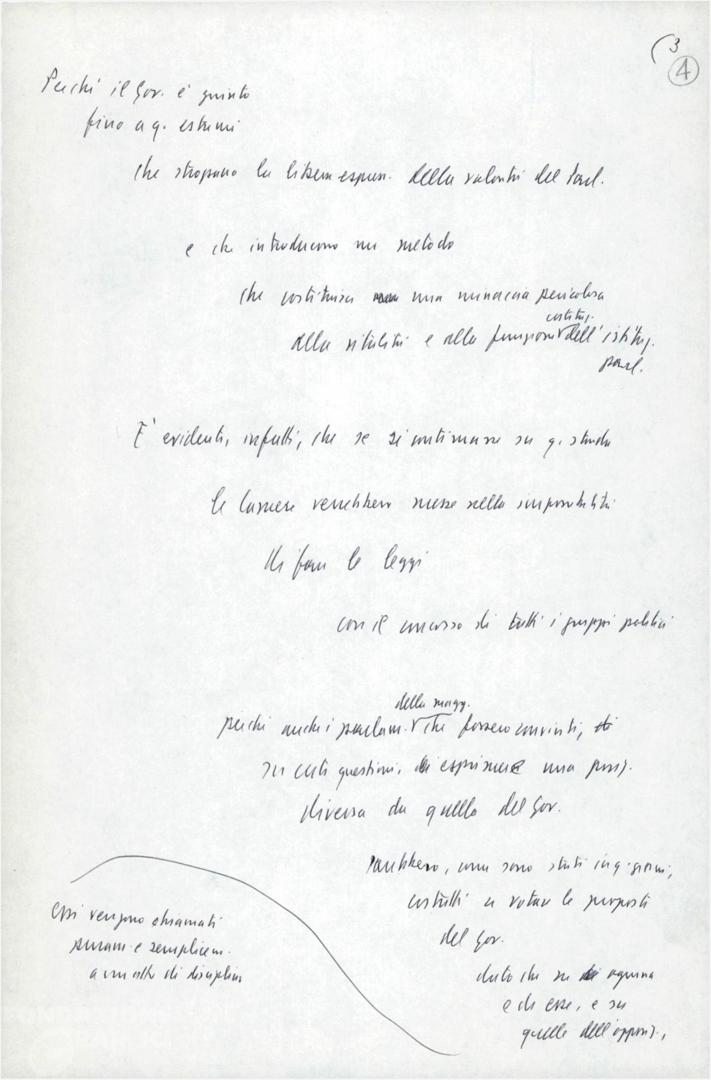 3
4
Perché il Gov. è giunto
fino a q. estremi
che strozzano la libera espress. della volontà del Parl.
e che introducono un metodo
che costituisce una minaccia pericolosa
costituz.
alla vitalità e alla funzione dell'istituz.
parl.
E' evidente, infatti, che se si continuasse su q. strada
le Camere verrebbero messe nella impossibilità
di fare le leggi
con il concorso di tutti i gruppi politici
della magg.
perché anche i parlam. che fossero convinti,
su certe questioni, di esprimere una posiz.
diversa da quella del Gov.
sarebbero, come sono stati in q. giorni,
costretti a votare le proposte
del Gov.
dato che su ognuna
e di esse, e su
quelle dell'opposiz.,
Essi vengono chiamati
puram. e semplicem.
a un atto di disciplina